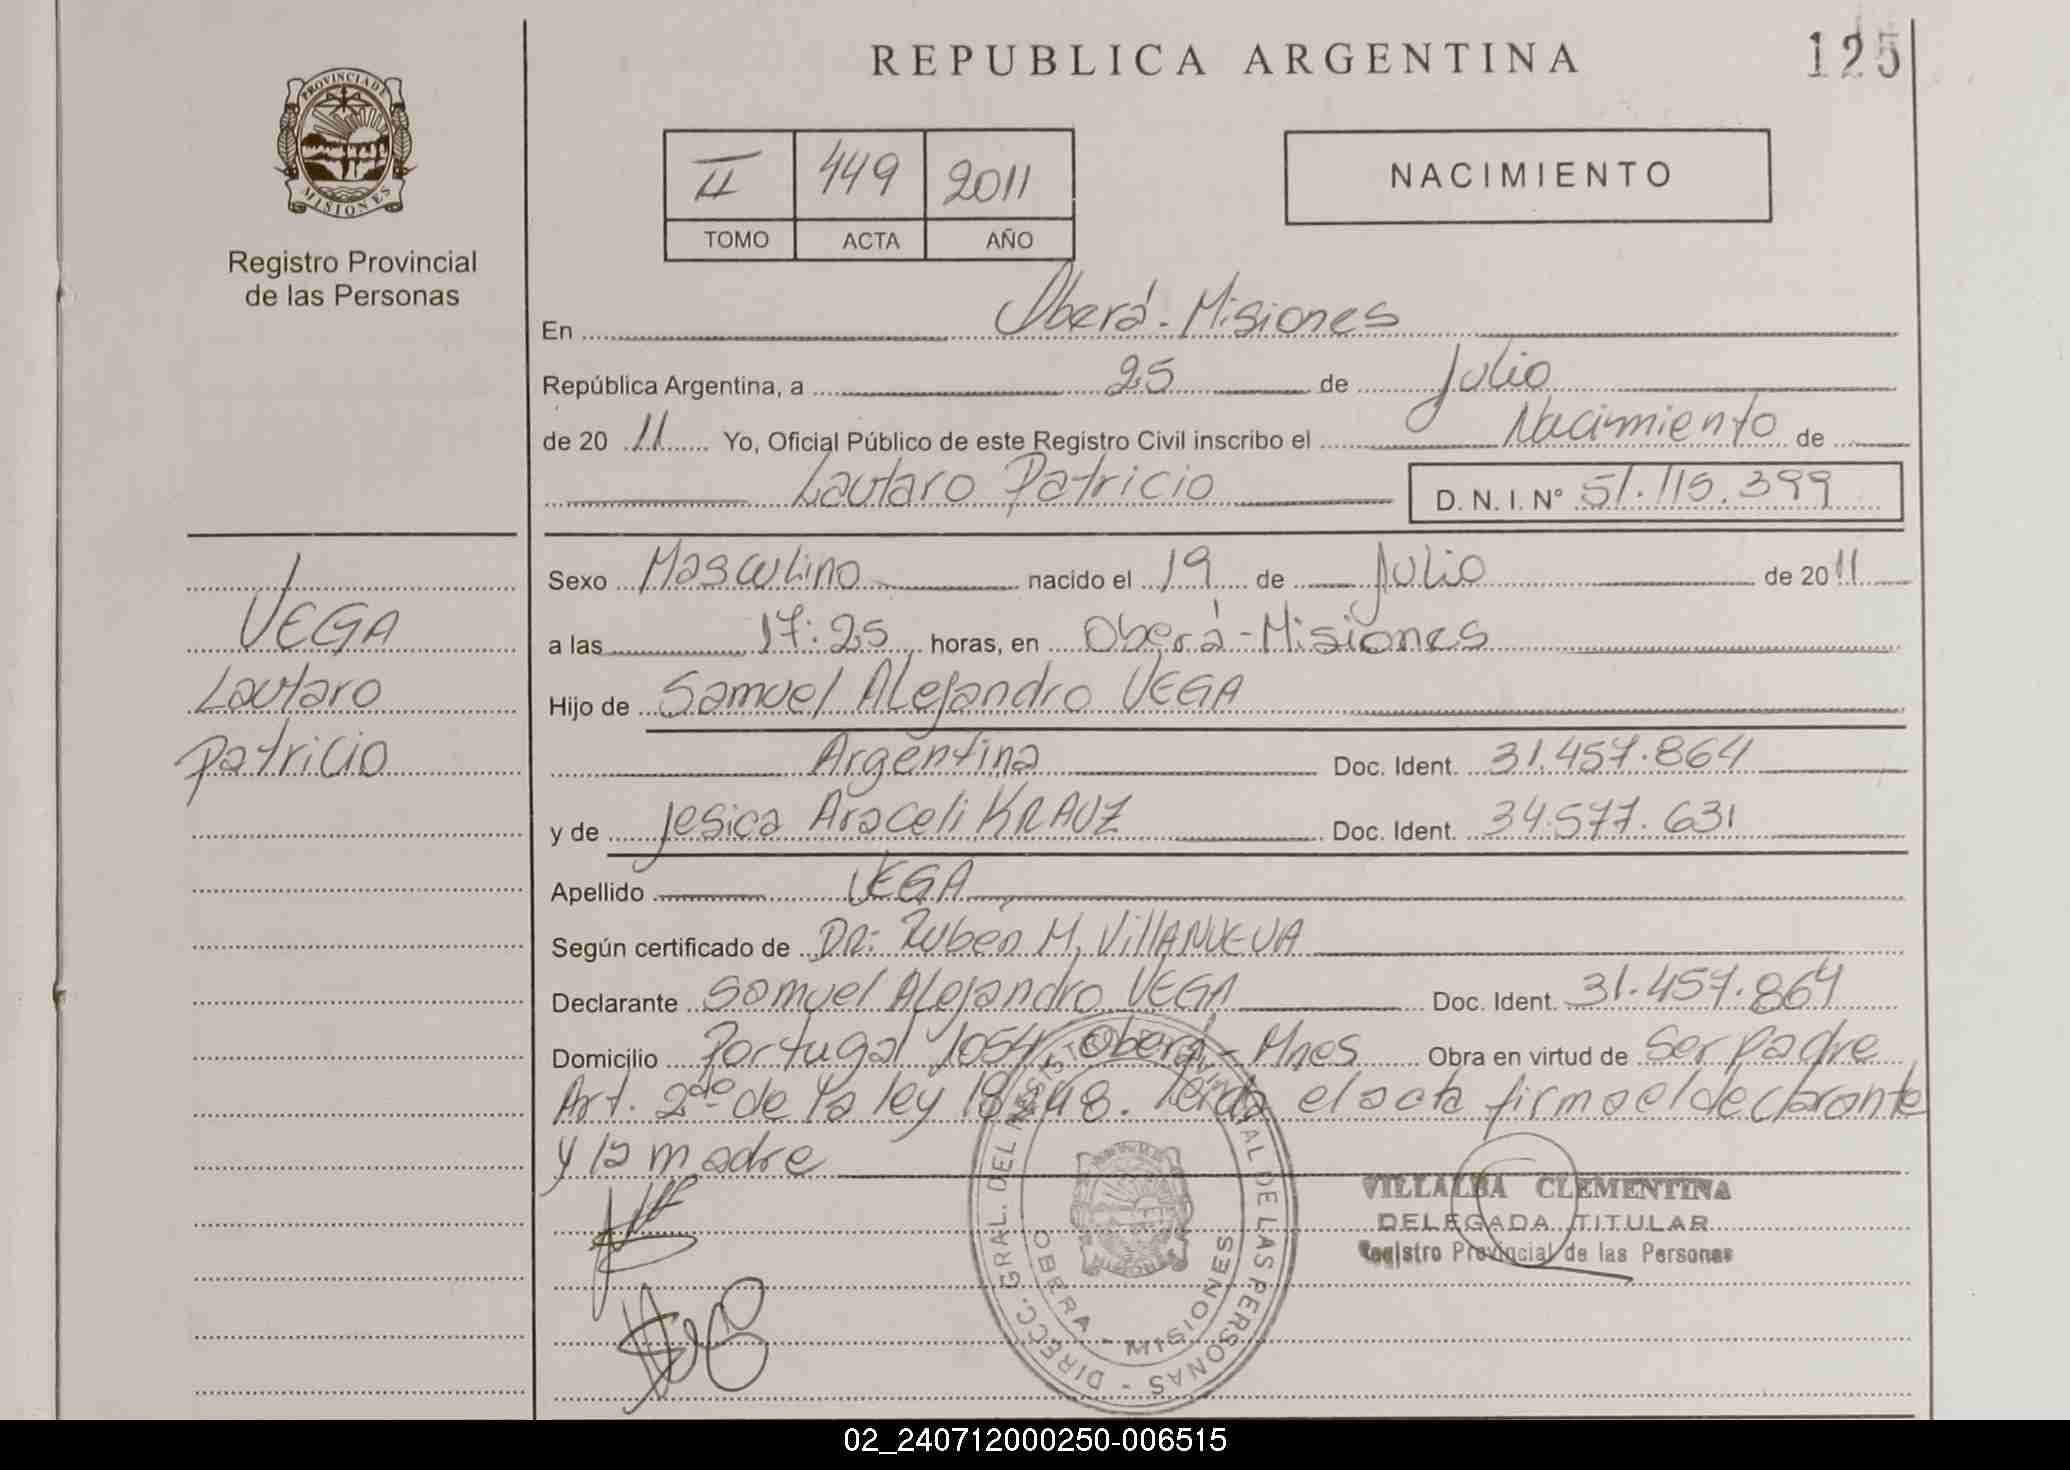 REPUBLICA ARGENTINA
125
PROVINCIA DE
MISIONES
Registro Provincial
de las Personas
II 449 2011
TOMO ACTA AÑO
NACIMIENTO
En Oberá - Misiones
República Argentina, a 25 de Julio
de 20 11 Yo, Oficial Público de este Registro Civil inscribo el Nacimiento de
Lautaro Patricio D. N. I. N° 51.115.399
VEGA
Lautaro
Patricio
Sexo Masculino nacido el 19 de Julio de 2011
a las 17:25 horas, en Oberá - Misiones
Hijo de Samuel Alejandro VEGA
Argentina Doc. Ident. 31.457.864
y de Jesica Araceli KRAUZ Doc. Ident. 34.577.631
Apellido VEGA
Según certificado de Dr: Rubén M. VILLANUEVA
Declarante Samuel Alejandro VEGA Doc. Ident. 31.457.864
Domicilio Portugal 1054 Oberá - Mnes Obra en virtud de ser padre
Art. 2do de la ley 18248. Leída el acta firma el declarante
y la madre
VILLALBA CLEMENTINA
DELEGADA TITULAR
Registro Provincial de las Personas
DIRECC. GRAL. DEL REGISTRO PROVINCIAL DE LAS PERSONAS -
OBERA - MISIONES
MISIONES
02_240712000250-006515